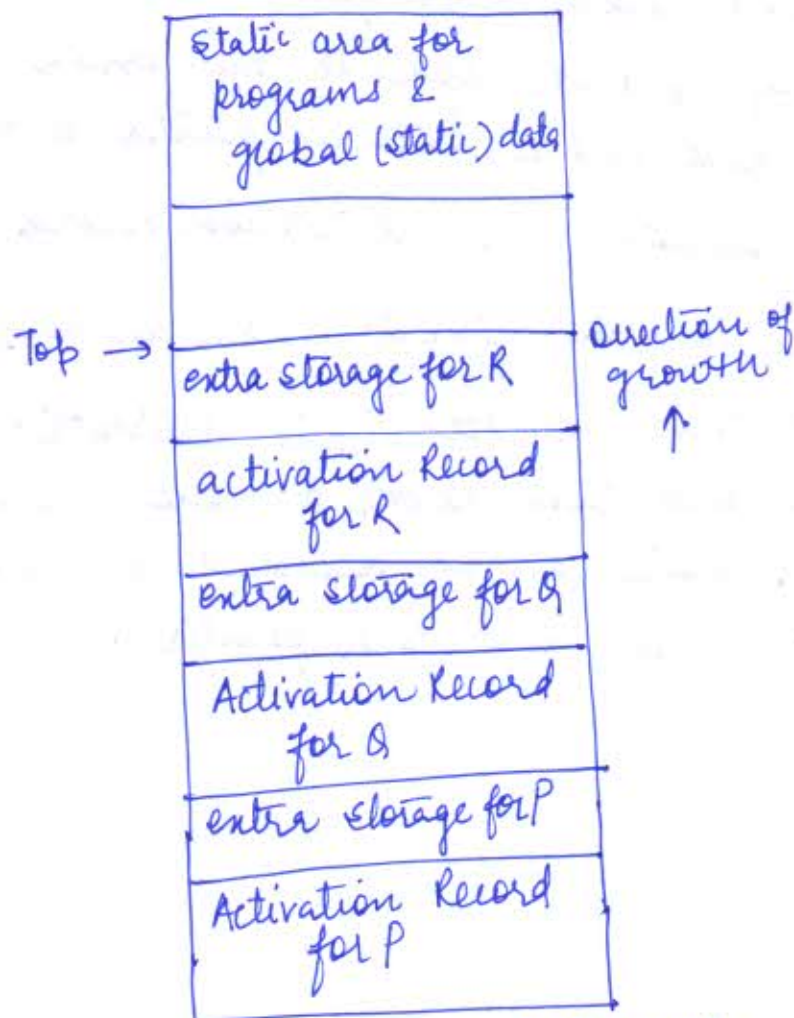 static area for
programs &
global (static) data
Top →
extra storage for R
Direction of
growth
↑
activation Record
for R
extra storage for Q
Activation Record
for Q
extra storage for P
Activation Record
for P